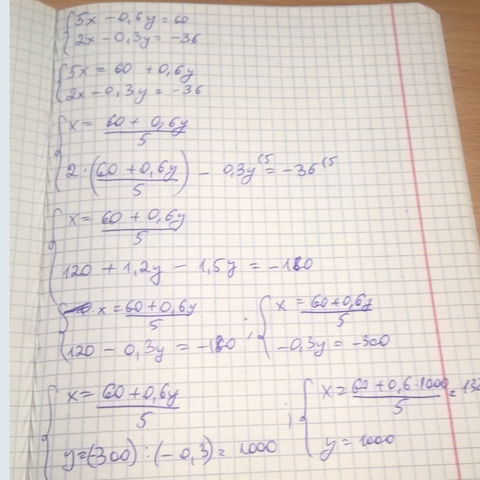 {5x - 0,6y = 60
{2x - 0,3y = -36
{5x = 60 + 0,6y
{2x - 0,3y = -36
{x = (60 + 0,6y)/5
{2·((60 + 0,6y)/5) - 0,3y^(5 = -36^(5
{x = (60 + 0,6y)/5
{120 + 1,2y - 1,5y = -180
{x = (60 + 0,6y)/5 ; {x = (60 + 0,6y)/5
{120 - 0,3y = -180 {-0,3y = -300
{x = (60 + 0,6y)/5 ; {x = (60 + 0,6·1000)/5 = 132
{y = (-300) : (-0,3) = 1000 {y = 1000